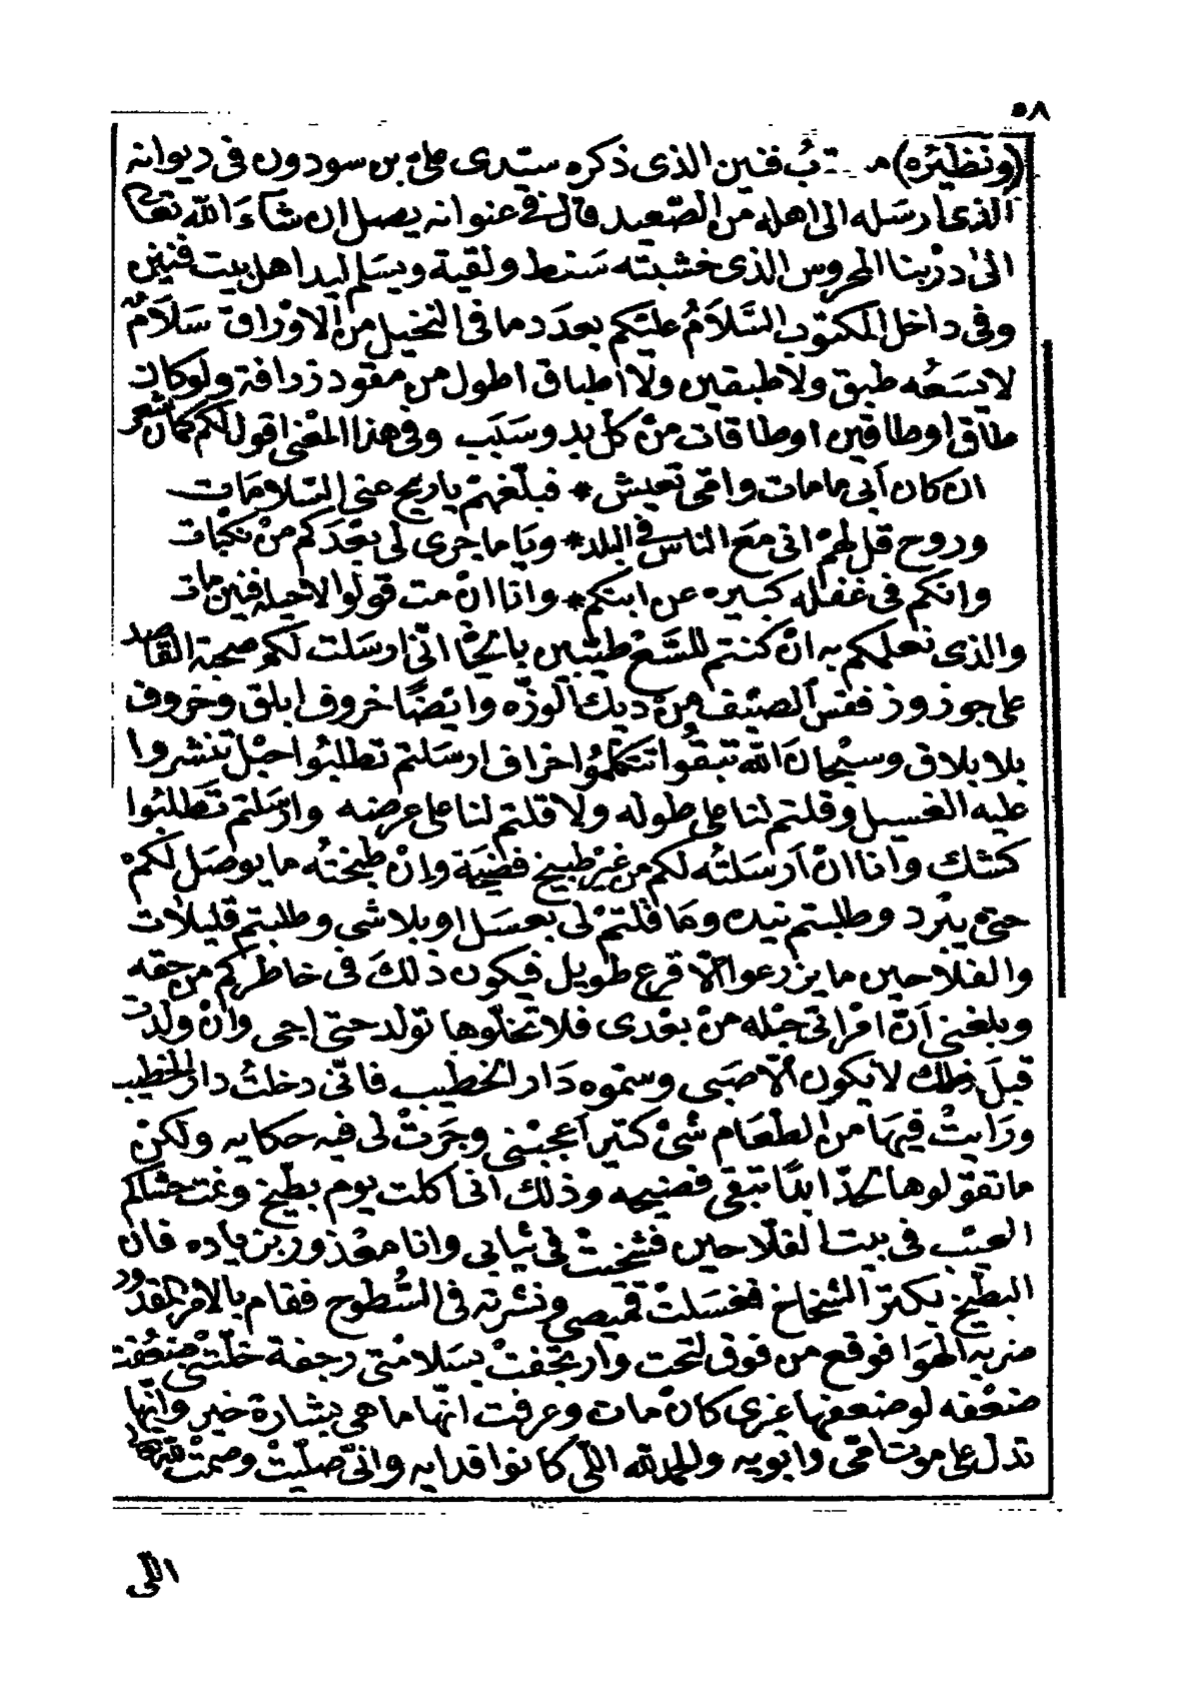 ٥٨
(ونظيره) فنين الذى ذكره سيدى على بن سودون فى ديوانه
الذى ارسله الى اهله من الصعيد قال فى عنوانه يصل ان شاء الله تعالى
الى دربنا المحروس الذى خشبته سنط ولقية ويسلم ليد اهل بيت فنين
وفى داخل المكتوب السلام عليكم بعدد ما فى النخيل من الاوراق سلام
لا يسعه طبق ولا طبقين ولا اطباق اطول من مقود زرافة ولو كان
طاق او طاقين او طاقات من كل بد وسبب وفى هذا المعنى اقول لكم كمان شعر
ان كان أبى ما مات وامى تعيش * فبلغهم يا ريح عنى السلامات
وروح قل لهم انى مع الناس فى البلد * ويا ما جرى لى بعدكم من نكبات
وانكم فى غفله كبيره عن ابنكم * وانا ان مت قولوا لاخيله فنين مات
والذى نعلمكم به ان كنتم للسع طيبين يا بختا انى ارسلت لكم صحبة القاصد
على جوز وز فقس الصيف من ديك الوزه وايضا خروف ابلق وخروف
بلا بلاق وسبحان الله تبقوا تتكلموا خراف ارسلتم تطلبوا حبل تنشروا
عليه الغسيل وقلتم لنا على طوله ولا قلتم لنا على عرضه وارسلتم تطلبوا
كشك وانا ان ارسلته لكم من غير طبيخ فضيحة وان طبخته ما يوصل لكم
حتى يبرد وطلبتم نيده وما قلتم لى بعسل او بلاشى وطلبتم قليلات
والفلاحين ما يزرعوا الا قرع طويل فيكون ذلك فى خاطركم من حقه
وبلغنى أن امراتى حبله من بعدى فلا تخلوها تولد حتى اجى وان ولدت
قبل ذلك لا يكون الا صبى وسموه دار الخطيب فانى دخلت دار الخطيب
ورايت فيها من الطعام شئ كتير أعجبنى وجرت لى فيه حكايه ولكن
ما تقولوها لحد ابدا تبقى فضيحه وذلك انى اكلت يوم بطيخ ونمت حشاكم
العيب فى بيت الفلاحين فشخيت فى ثيابى وانا معذور بزياده فان
البطيخ يكتر الشخاخ فغسلت قميصى ونشرته فى السطوح فقام بالامر المقدور
ضربه الهوا فوقع من فوق لتحت وارتجفت بسلامتى رجفة خلتنى ضعفت
ضعفه لو ضعفها غيرى كان مات وعرفت انها ما هى بشارة خير وانها
تدل على موت امى وابويه والحمد لله اللى كانوا فدايه وانى صليت وصمت لله
اللى